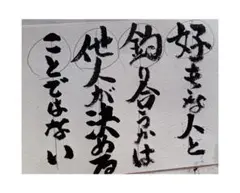 好きな人と
釣り合うかは
他人が決める
ことではない